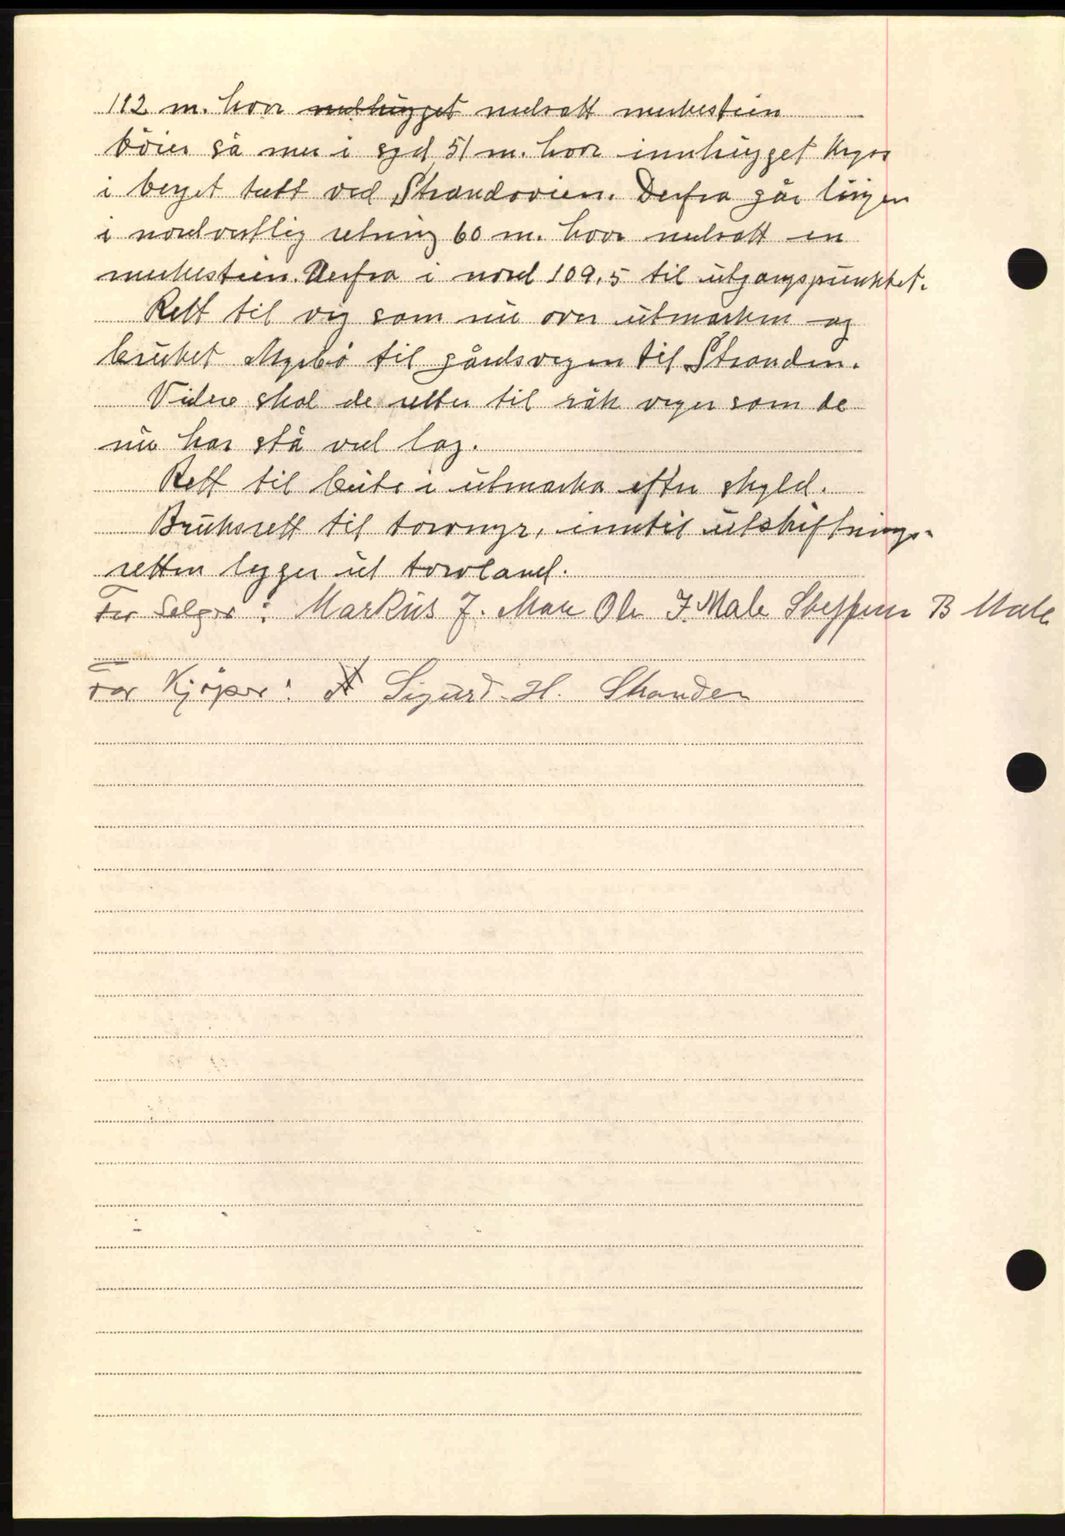 112 m. hvor nedhugget nedsatt merkestein
böier så mer i syd 51 m. hvor innhugget kryss
i berget tett ved Strandsvien. Derfra går linjen
i nordvestlig retning 60 m. hvor nedsatt en
merkestein. Derfra i nord 109,5 til utgangspunktet.
Rett til veg som nu over utmarken og
bruket Myrbö til gårdsvegen til Stranden.
Videre skal de retter til råk veger som de
nu har stå ved lag.
Rett til beite i utmarka efter skyld.
Bruksrett til torvmyr, inntil utskiftnings-
retten legger ut torvland.
For Selger: Markus J. Male Ole J. Male Steffen B Male
For Kjöper: Sigurd H. Stranden